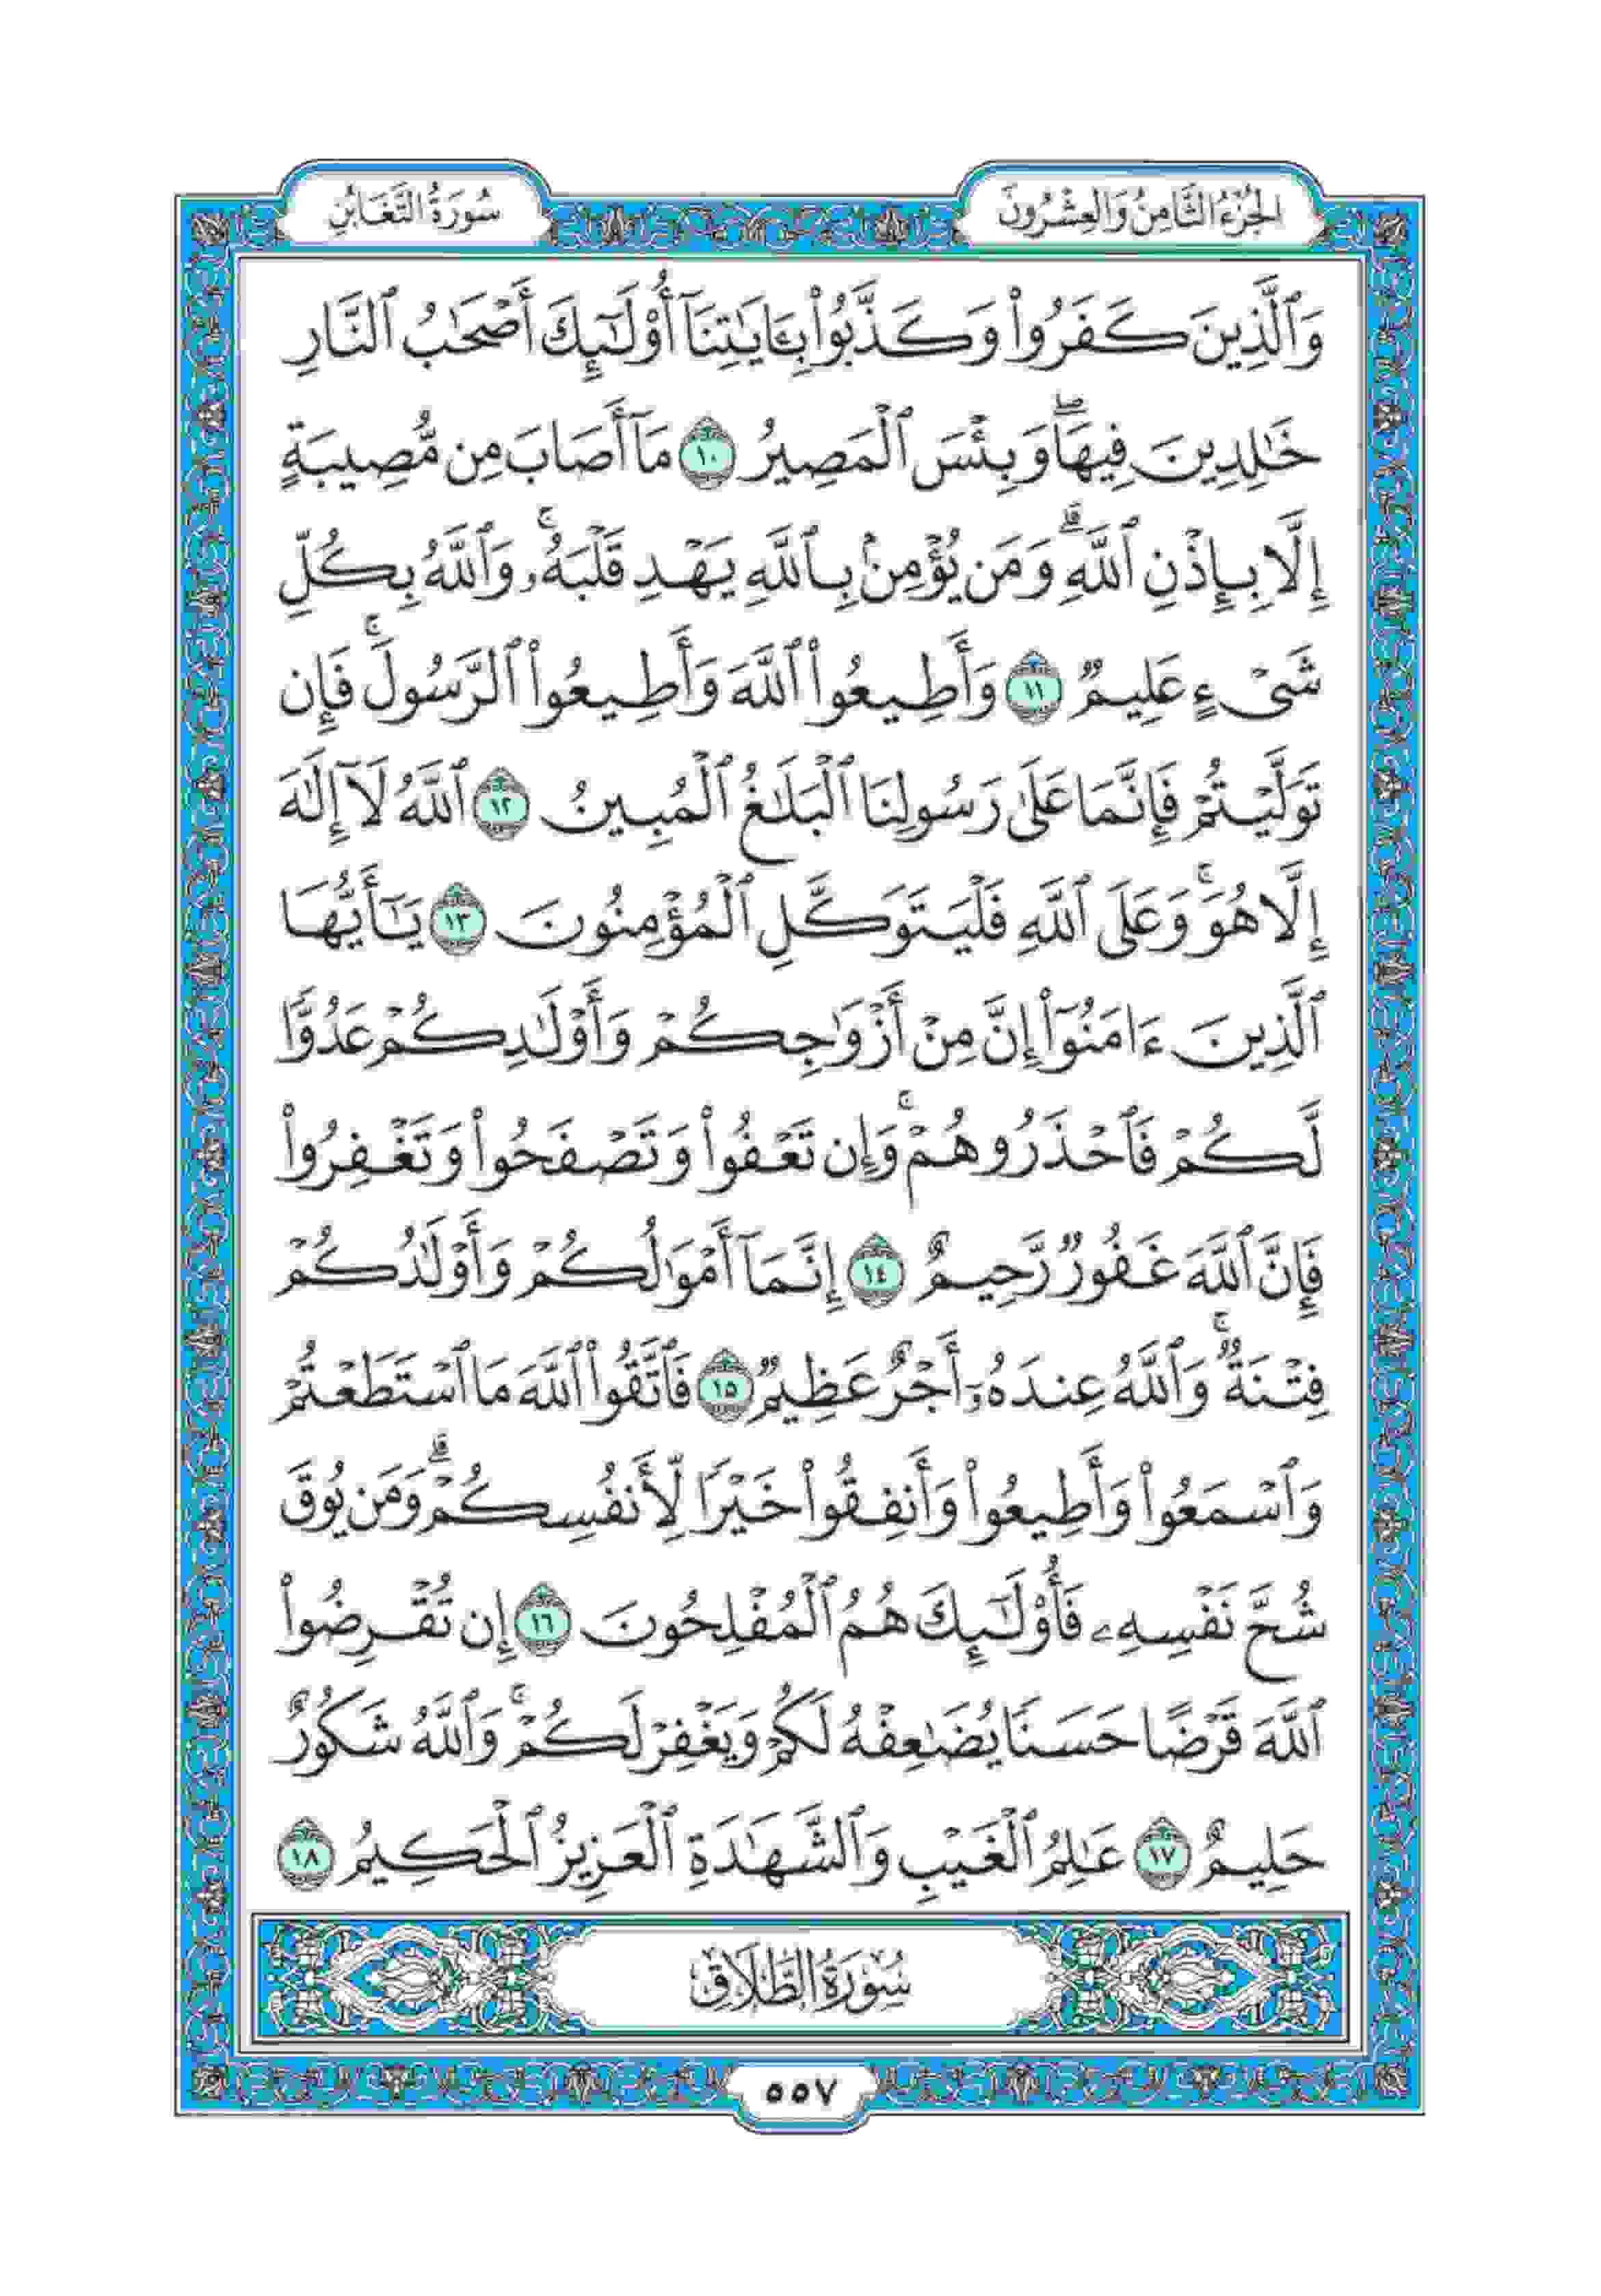 الجُزْءُ الثَّامِنُ وَالعِشْرُونَ
سُورَةُ التَّغَابُنِ
وَٱلَّذِينَ كَفَرُوا۟ وَكَذَّبُوا۟ بِـَٔايَـٰتِنَآ أُو۟لَـٰٓئِكَ أَصْحَـٰبُ ٱلنَّارِ
خَـٰلِدِينَ فِيهَا ۖ وَبِئْسَ ٱلْمَصِيرُ ١٠ مَآ أَصَابَ مِن مُّصِيبَةٍ
إِلَّا بِإِذْنِ ٱللَّهِ ۗ وَمَن يُؤْمِنۢ بِٱللَّهِ يَهْدِ قَلْبَهُۥ ۚ وَٱللَّهُ بِكُلِّ
شَىْءٍ عَلِيمٌ ١١ وَأَطِيعُوا۟ ٱللَّهَ وَأَطِيعُوا۟ ٱلرَّسُولَ ۚ فَإِن
تَوَلَّيْتُمْ فَإِنَّمَا عَلَىٰ رَسُولِنَا ٱلْبَلَـٰغُ ٱلْمُبِينُ ١٢ ٱللَّهُ لَآ إِلَـٰهَ
إِلَّا هُوَ ۚ وَعَلَى ٱللَّهِ فَلْيَتَوَكَّلِ ٱلْمُؤْمِنُونَ ١٣ يَـٰٓأَيُّهَا
ٱلَّذِينَ ءَامَنُوٓا۟ إِنَّ مِنْ أَزْوَٰجِكُمْ وَأَوْلَـٰدِكُمْ عَدُوًّا
لَّكُمْ فَٱحْذَرُوهُمْ ۚ وَإِن تَعْفُوا۟ وَتَصْفَحُوا۟ وَتَغْفِرُوا۟
فَإِنَّ ٱللَّهَ غَفُورٌ رَّحِيمٌ ١٤ إِنَّمَآ أَمْوَٰلُكُمْ وَأَوْلَـٰدُكُمْ
فِتْنَةٌ ۚ وَٱللَّهُ عِندَهُۥٓ أَجْرٌ عَظِيمٌ ١٥ فَٱتَّقُوا۟ ٱللَّهَ مَا ٱسْتَطَعْتُمْ
وَٱسْمَعُوا۟ وَأَطِيعُوا۟ وَأَنفِقُوا۟ خَيْرًا لِّأَنفُسِكُمْ ۗ وَمَن يُوقَ
شُحَّ نَفْسِهِۦ فَأُو۟لَـٰٓئِكَ هُمُ ٱلْمُفْلِحُونَ ١٦ إِن تُقْرِضُوا۟
ٱللَّهَ قَرْضًا حَسَنًا يُضَـٰعِفْهُ لَكُمْ وَيَغْفِرْ لَكُمْ ۚ وَٱللَّهُ شَكُورٌ
حَلِيمٌ ١٧ عَـٰلِمُ ٱلْغَيْبِ وَٱلشَّهَـٰدَةِ ٱلْعَزِيزُ ٱلْحَكِيمُ ١٨
سُورَةُ الطَّلَاقِ
٥٥٧